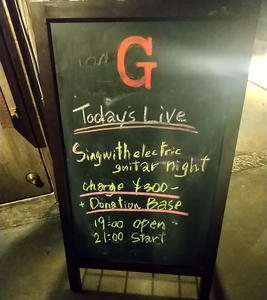 G
Today's Live
Sing with electric
guitar night
charge ¥300-
+ Donation Base
19:00 open
21:00 start